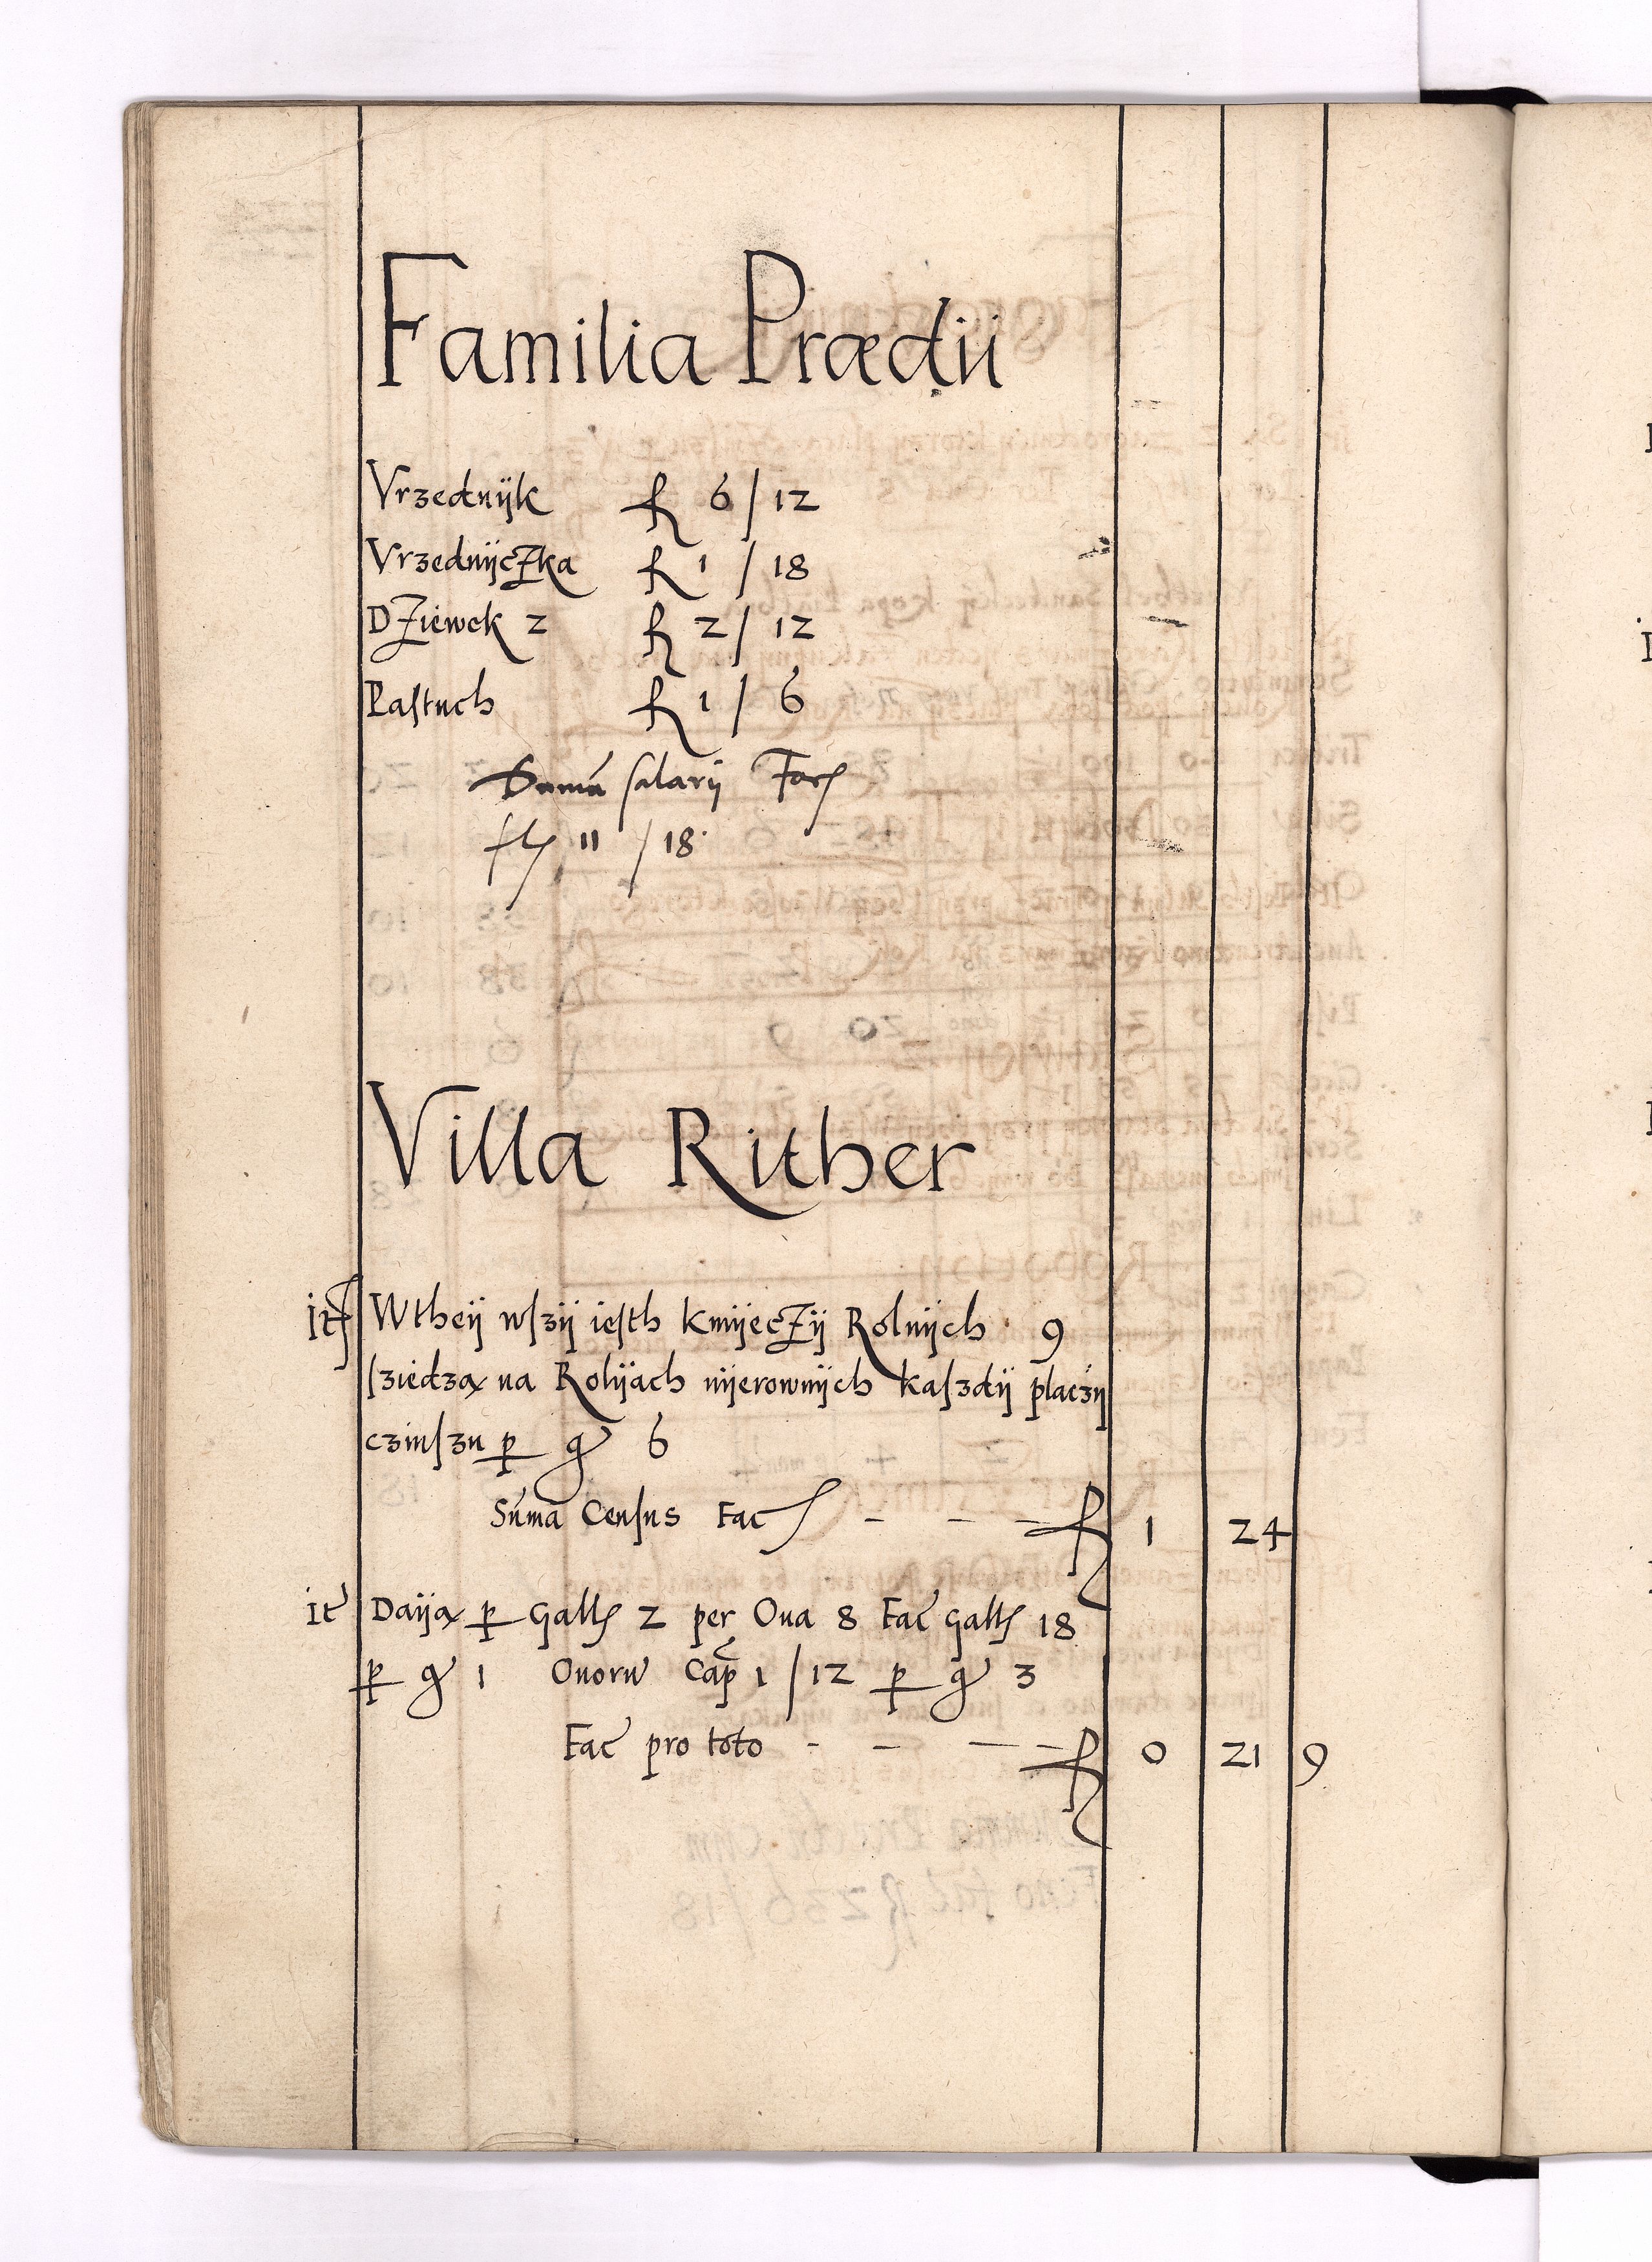 Familia Prædii
Vrzednijk fl 6/12
Vrzednijczka fl 1/18
Dziewek 2 fl 2/12
Pastuch fl 1/6
Suma salarij Fac
fl 11/18
Villa Rither
it Wtheij wszij iesth kmijeczij Rolnijch 9
sziedzą na Rolijach nijerownijch kaszdij placzij
czinszu p g 6
Suma Census Fac - - - fl 1 24
it Daiją p Galls 2 per Oua 8 Fac galls 18
p g 1 Ouoru Cap 1/12 p g 3
Fac pro toto - - - fl 0 21 9